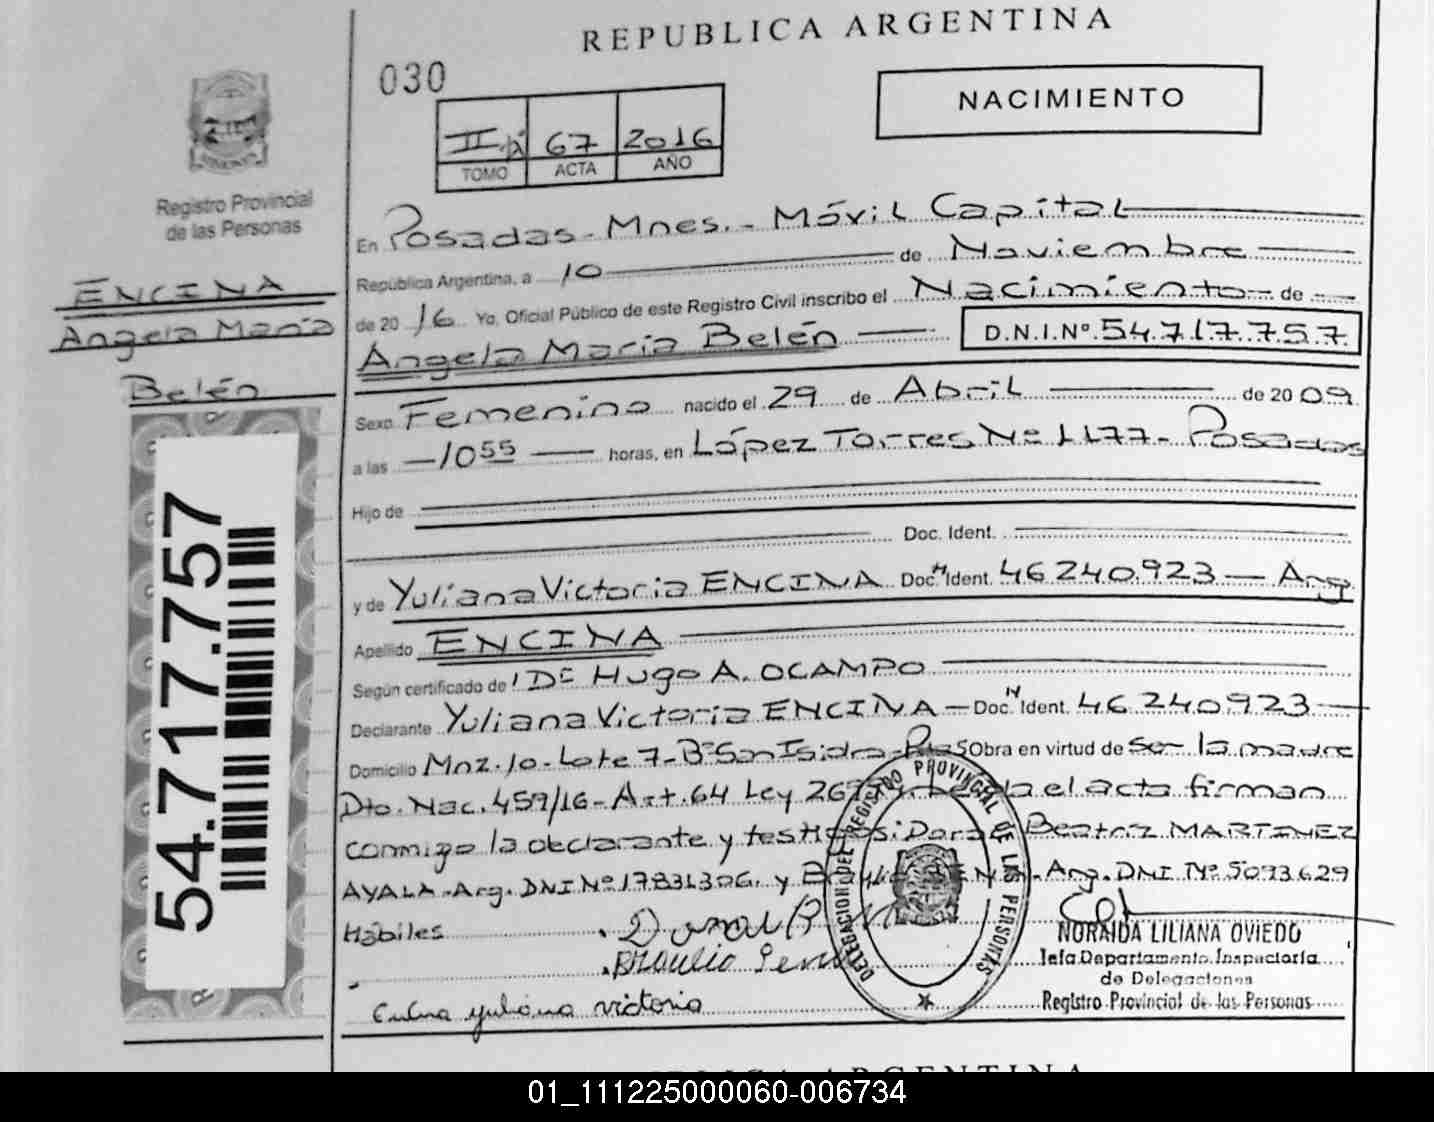 REPUBLICA ARGENTINA
030
NACIMIENTO
67 2016
TOMO ACTA AÑO
Registro Provincial
de las Personas
ENCINA
Angela María
Belén
54.717.757
En Posadas - Mnes. - Móvil Capital
República Argentina, a 10 de Noviembre
de 2016 Yo, Oficial Público de este Registro Civil inscribo el Nacimiento de
Angela María Belén D.N.I.Nº 54.717.757
Sexo Femenino nacido el 29 de Abril de 2009
a las 10 55 horas, en López Torres Nº 1177 - Posadas
Hijo de
Doc. Ident.
y de Yuliana Victoria ENCINA Doc. N Ident. 46240.923 - Arg
Apellido ENCINA
Según certificado de Hugo A. OCAMPO
Declarante Yuliana Victoria ENCINA - Doc. N Ident. 46240.923
Domicilio Mnz. 10 - Lote 7 - Bº San Isidro - Obra en virtud de ser la madre
Dto. Nac. 459/16 - Art. 64 Ley el acta firman
conmigo la declarante y testigos: Beatriz MARTINEZ
AYALA - Arg. DNI Nº 17831306 y - Arg. DNI Nº 5093629
Hábiles
DELEGACION DEL REGISTRO PROVINCIAL DE LAS PERSONAS
NORAIDA LILIANA OVIEDO
Jefa Departamento Inspectoría
de Delegaciones
Registro Provincial de las Personas
Braulio
yuliana victoria
ARGENTINA
01_111225000060-006734